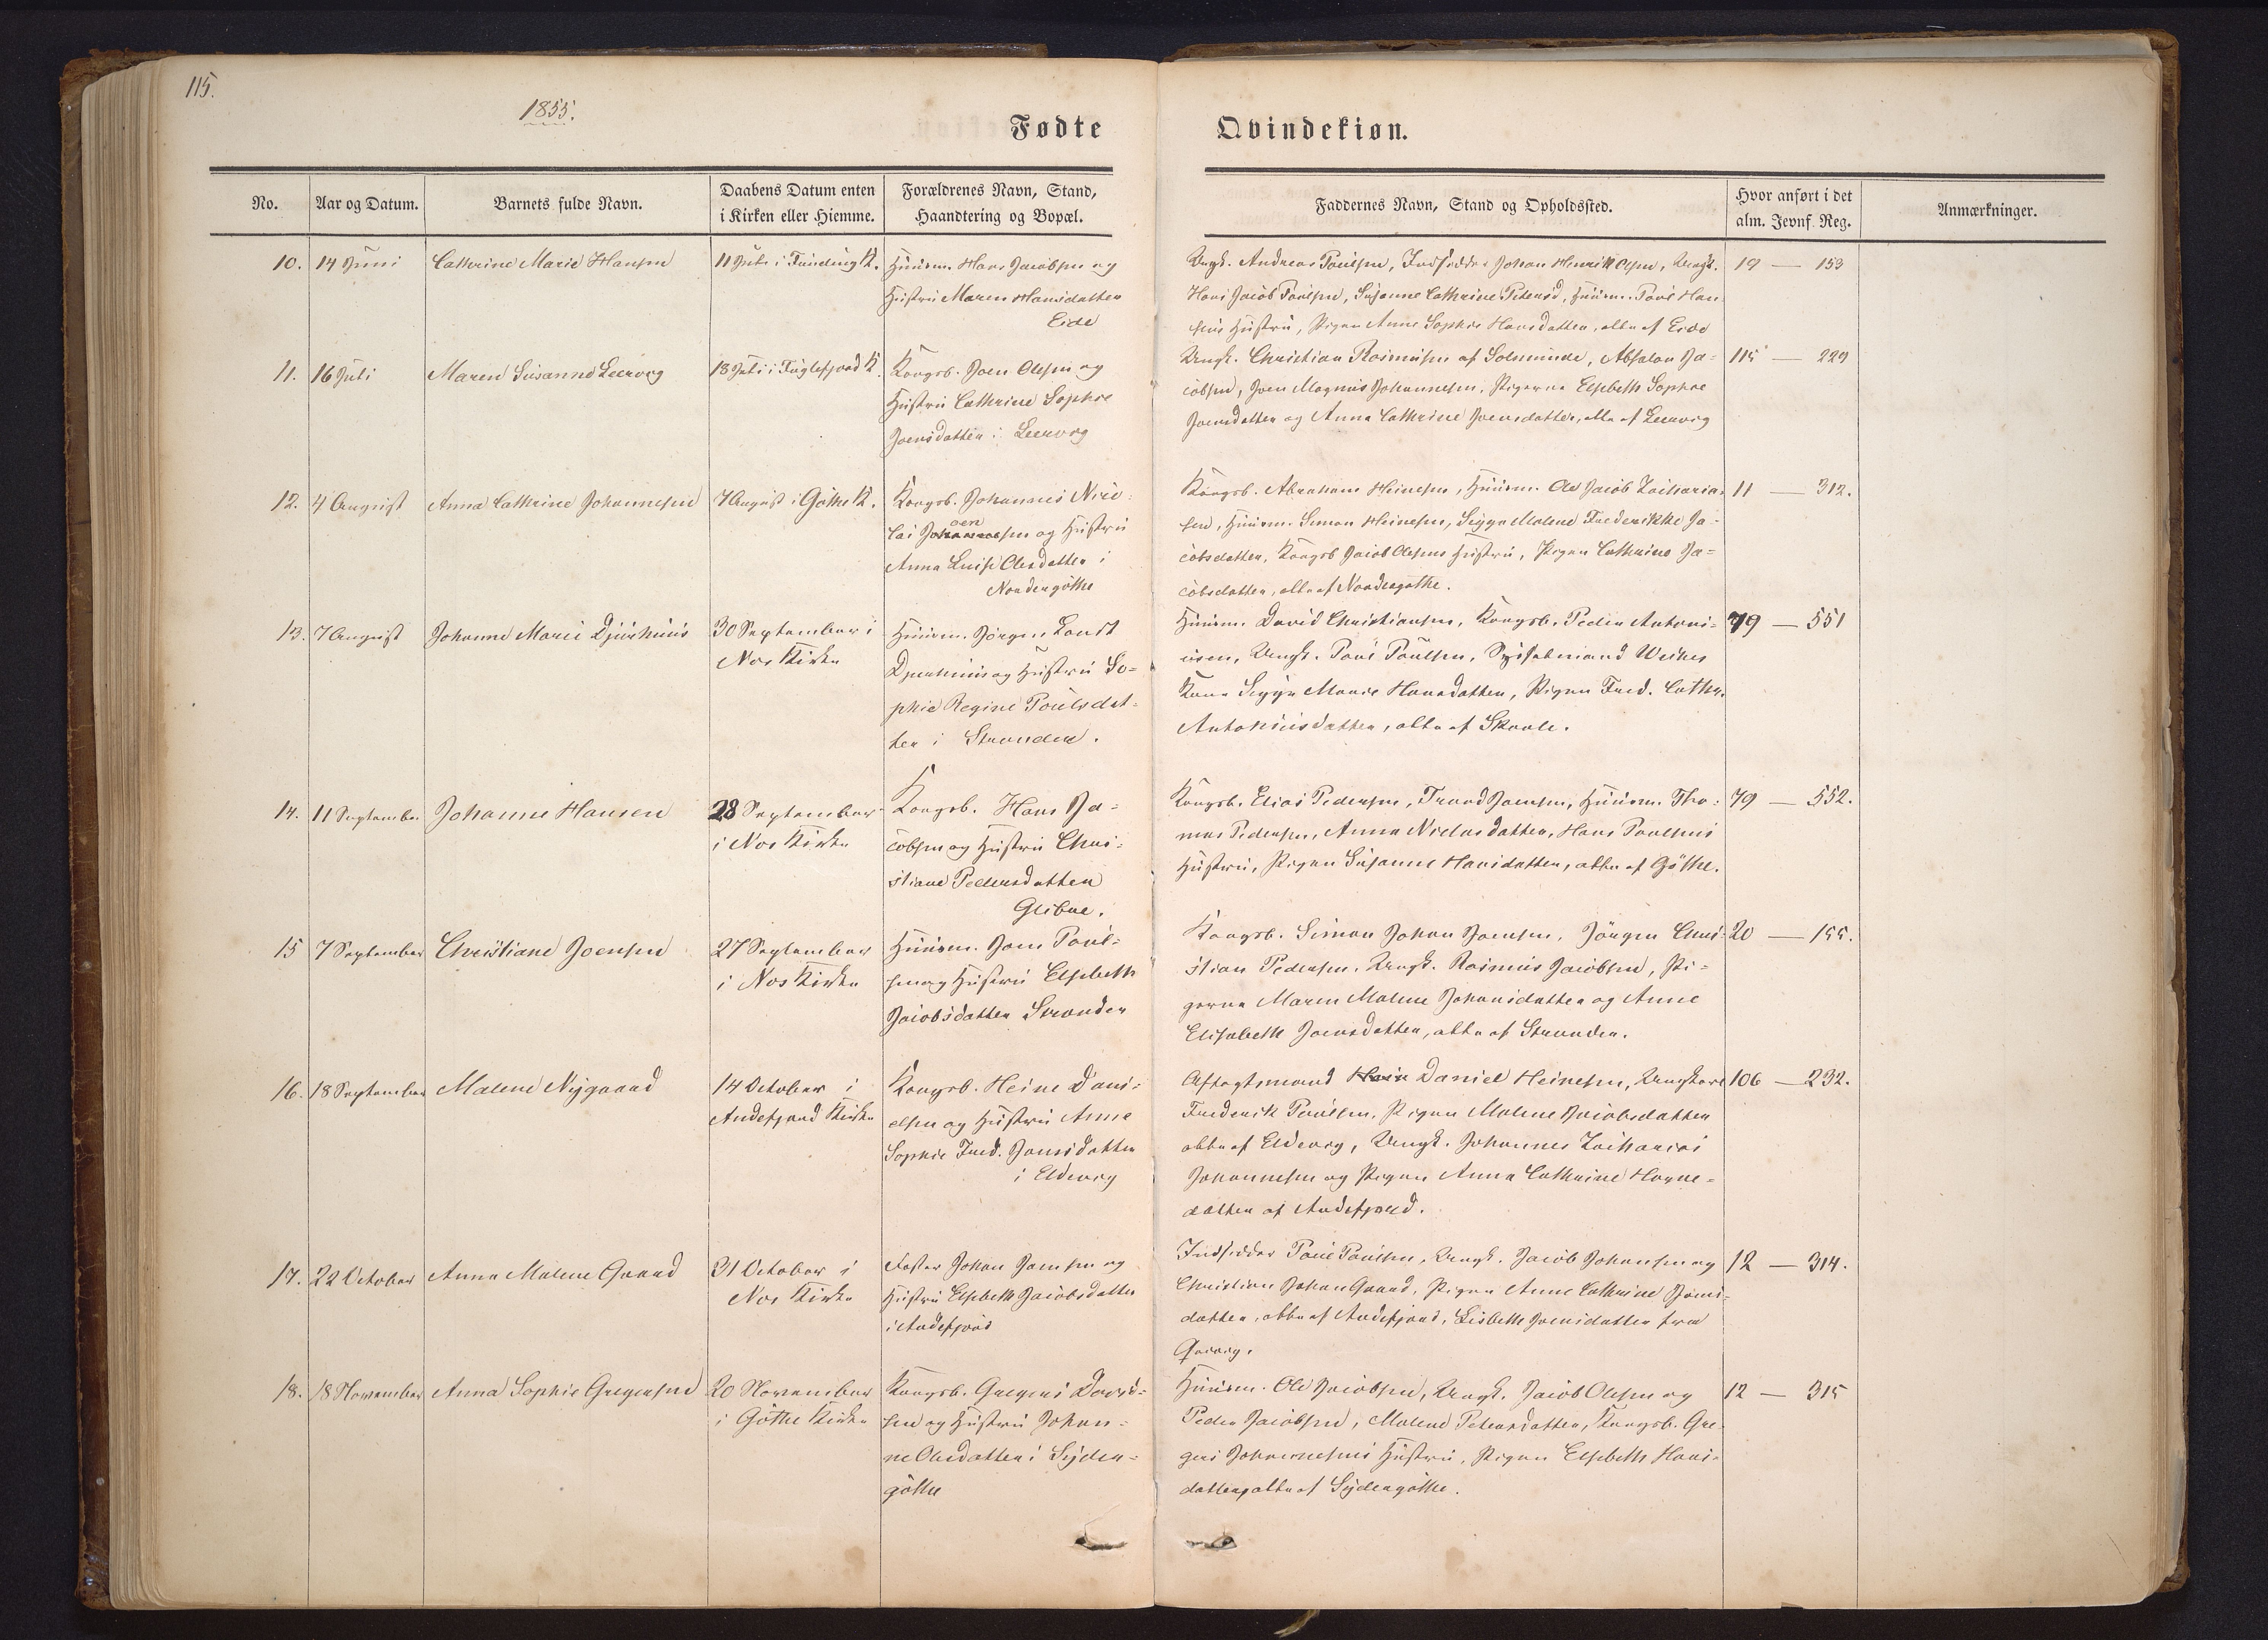 115.
1855.
Fødte
Qvindekiøn.
No.
Aar og Datum.
Barnets fulde Navn.
Daabens Datum enten
i Kirken eller Hiemme.
Forældrenes Navn, Stand,
Haandtering og Bopæl.
Faddernes Navn, Stand og Opholdssted.
Hvor anført i det
alm. Jevnf. Reg.
Anmærkninger.
10. 14 Juni Cathrine Marie Hansen 11 Juli i Funding K.
Huusm. Hans Jacobsen og
Hustru Maren Hansdatter
Eide
Ungk. Andreas Poulsen, Indsidder Johan Henrik Olsen, Ungk.
Hans Jacob Poulsen, Susanne Cathrine Petersd, Huusm. Poul Han
sens Hustru, Pigen Anne Sophie Hansdatter, alle af Eide
19 — 153
11. 16 Juli Maren Susanne Leervig 18 Juli i Fuglefjord K.
Kongsb. Joen Olesen og
Hustru Cathrine Sophie
Joensdatter i Leervig
Ungk. Christian Rasmusen af Solmunde, Absalon Ja=
cobsen, Joen Magnus Johannesen, Pigerne Elsbeth Sophie
Joensdatter og Anna Cathrine Joensdatter, alle af Leervig
115 — 229
12. 4 August Anna Cathrine Johannesen 7 August i Gøthe K.
Kongsb. Johannes Nico=
lai Joensen og Hustru
Anna Luise Olesdatter i
Nordregøthe
Kongsb. Abraham Heinesen, Huusm. Ole Jacob Zacharia=
sen, Huusm. Simon Heinesen, Sigga Malene Frederikke Ja=
cobsdatter, Kongsb Jacob Olesens Hustru, Pigen Cathrine Ja=
cobsdatter, alle af Nordregøthe.
11 — 312.
13. 7 August Johanne Marie Djurhuus
30 September i
Næs Kirke
Huusm. Jørgen Landt
Djurhuus og Hustru So=
phie Regine Poulsdat=
ter i Strænder.
Huusm. David Christiansen, Kongsb. Peder Antoni=
usen, Ungk. Poul Poulsen, Sysselmand Weihes
Kone Sigga Marie Hansdatter, Pigen Fred. Cathr.
Antoniusdatter, alle af Skaale.
79 — 551
14. 11 September Johanne Hansen
28 September
i Næs Kirke
Kongsb. Hans Ja=
cobsen og Hustru Chri=
stiane Pedersdatter
Glibre.
Kongsb. Elias Pedersen, Trond Joensen, Huusm. Tho=
mas Pedersen, Anna Niclasdatter, Hans Poulsens
Hustru, Pigen Susanne Hansdatter, alle af Gøthe.
79 — 552.
15 7 September Christiane Joensen
27 September
i Næs Kirke
Huusm. Joen Poul=
sen og Hustru Elsebeth
Jacobsdatter Strænder
Kongsb. Simon Johan Joensen, Jørgen Chri=
stian Pedersen, Ungk. Rasmus Jacobsen, Pi=
gerne Maren Malene Johansdatter og Anne
Elisabeth Joensdatter, alle af Strænder.
20 — 155.
16. 18 September Malene Nygaard
14 October i
Andefjord Kirke
Kongsb. Heine Dani=
elsen og Hustru Anne
Sophie Fred. Joensdatter
i Eldevig
Aftægtsmand Hein Daniel Heinesen, Ungkarl
Frederik Poulsen, Pigen Malene Jacobsdatter
alle af Eldevig, Ungk. Johannes Zacharias
Johannesen og Pigen Anna Cathrine Hogne=
datter af Andefjord.
106 — 232.
17. 22 October Anna Malene Gaard
31 October i
Næs Kirke
Fæster Johan Joensen og
Hustru Elsebeth Jacobsdatter
i Andefjord
Indsidder Poul Poulsen, Ungk. Jacob Johansen og
Christian Johan Gaard, Pigen Anne Cathrine Joens=
datter, alle af Andefjord, Lisbeth Joensdatter fra
12 — 314.
18. 18 November Anna Sophie Gregersen
20 November
i Gøthe Kirke
Kongsb. Gregers David=
sen og Hustru Johan=
ne Olesdatter i Syder=
gøthe
Huusm. Ole Jacobsen, Ungk. Jacob Olesen og
Peder Jacobsen, Malene Petersdatter, Kongsb. Gre
gers Johannesens Hustru, Pigen Elsbeth Hans=
datter, alle af Sydergøthe.
12 — 315